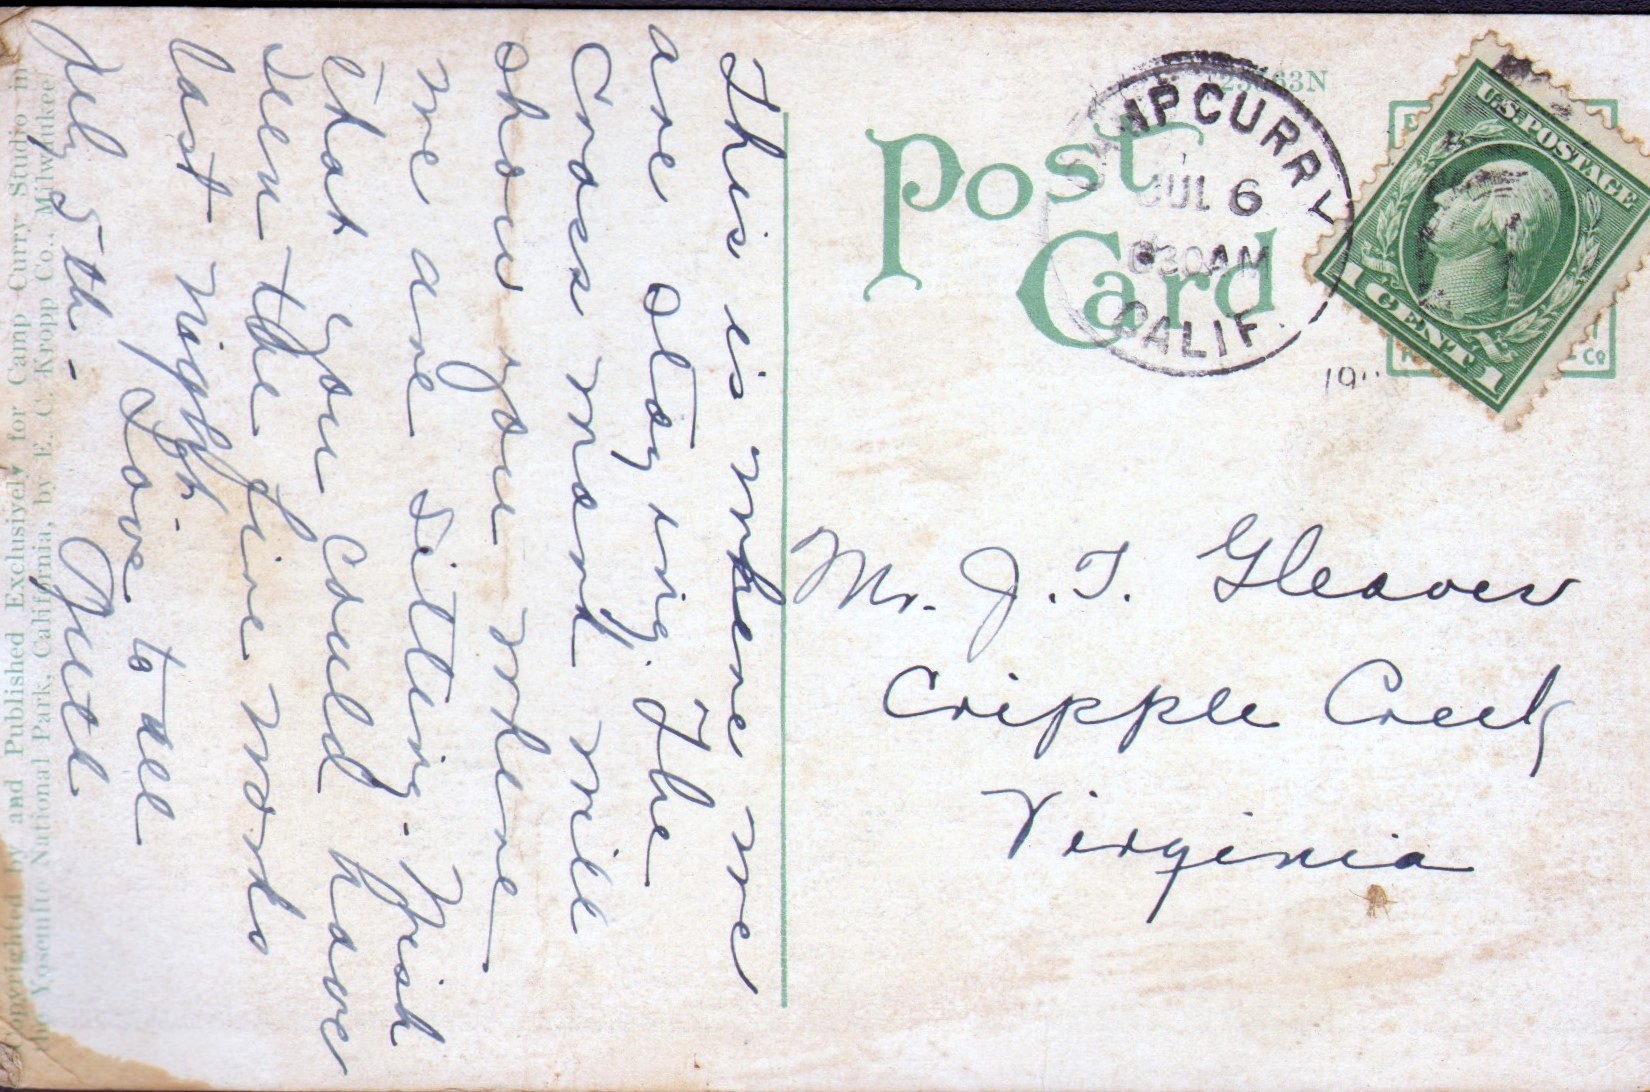 This is where we
are staying. The
Cross mark will
show you where
we are sitting. Wish
that you could have
seen the fire works
last night.
Love to all
July 5th - Ruth
Copyrighted by and Published Exclusively for Camp Curry Studio in
the Yosemite National Park, California, by E. C. Kropp Co., Milwaukee
Post
Card
CAMP CURRY
JUL 6
630AM
CALIF.
U.S. POSTAGE
1 CENT 1
Co
Mr. J. T. Gleaves
Cripple Creek
Virginia